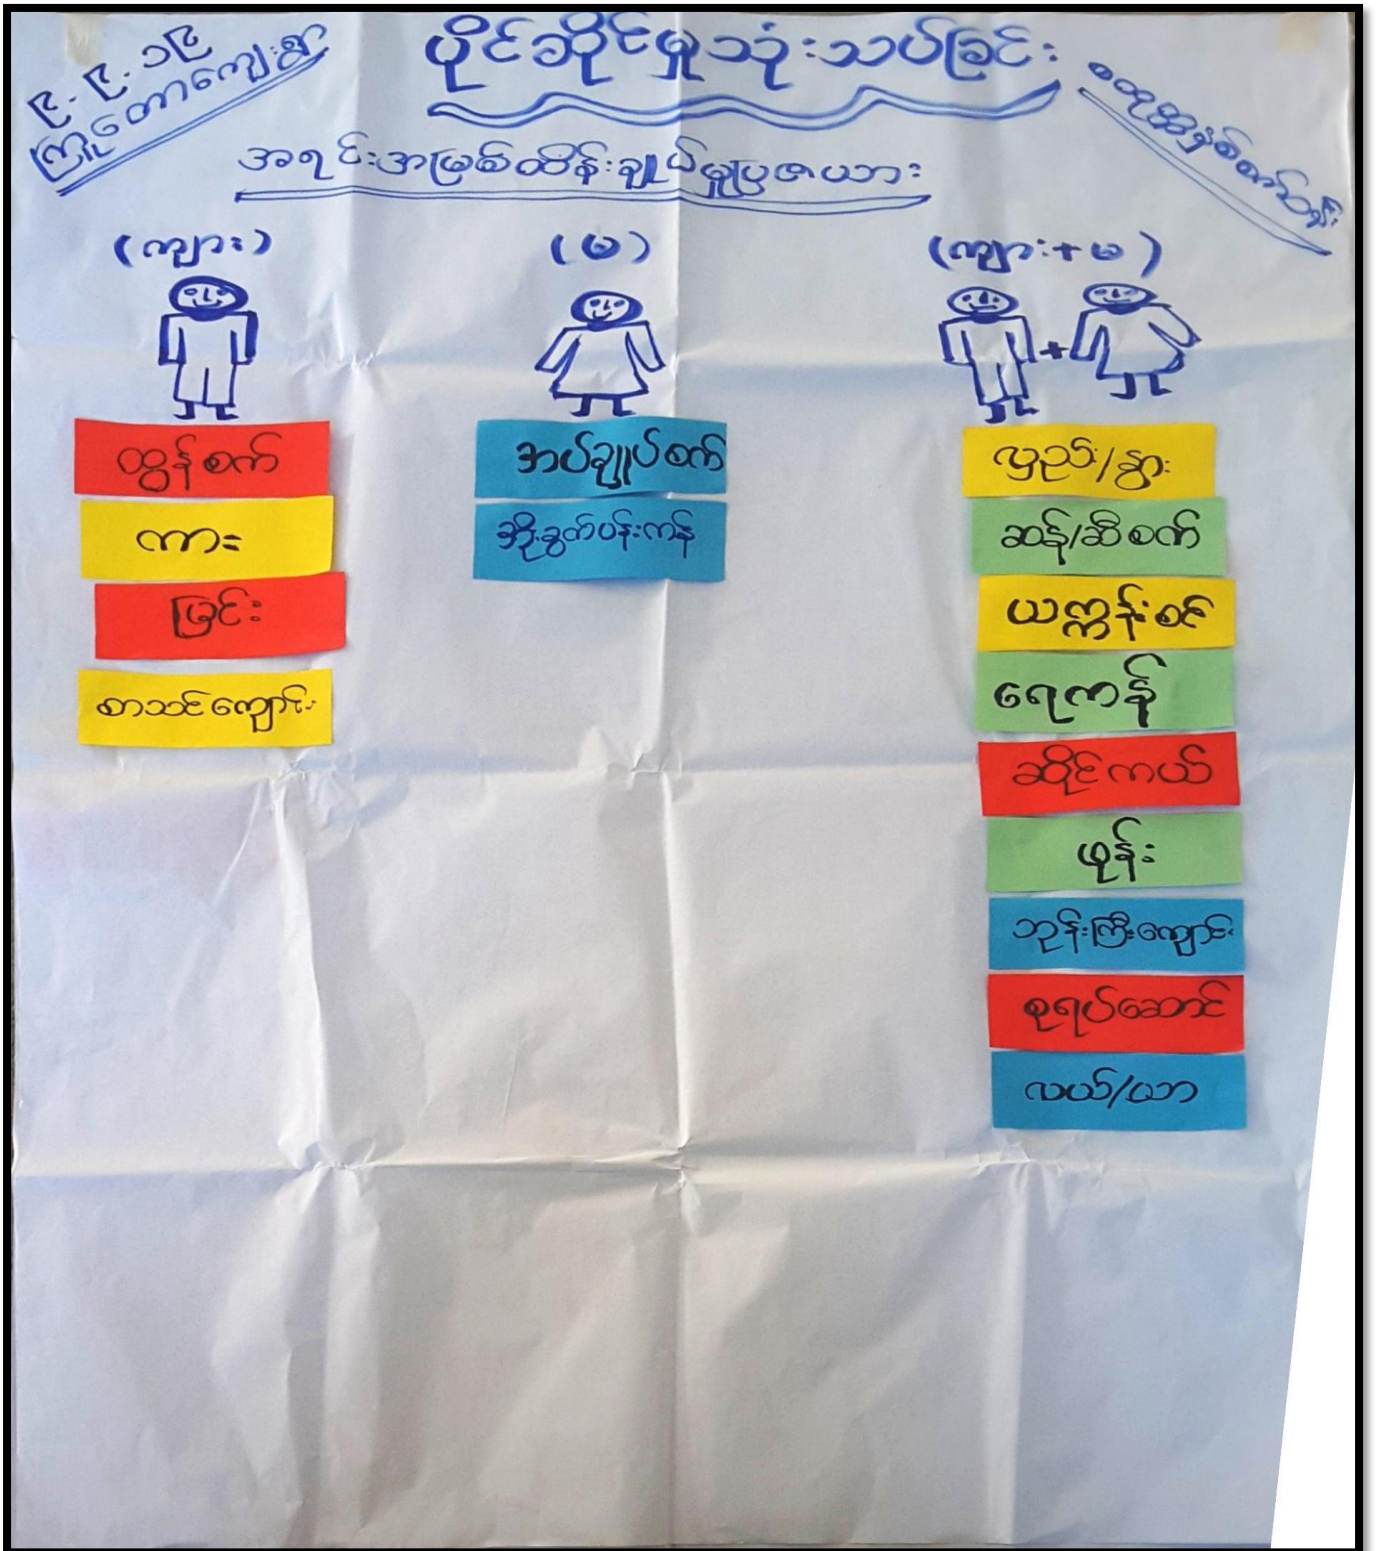 ၉.၉.၁၉
ကြို့တောကျေးရွာ
ပိုင်ဆိုင်မှုသုံးသပ်ခြင်း
အရင်းအမြစ်ထိန်းချုပ်မှုပြဇယား
(ကျား)
(မ)
(ကျား+မ)
ထွန်စက်
ကား
မြင်း
စာသင်ကျောင်း
အပ်ချုပ်စက်
အိုးခွက်ပန်းကန်
လှည်း/နွား
ဆန်/ဆီစက်
ယက္ကန်းစင်
ရေကန်
ဆိုင်ကယ်
ဖုန်း
ဘုန်းကြီးကျောင်း
စုရပ်ဆောင်
လယ်/ယာ